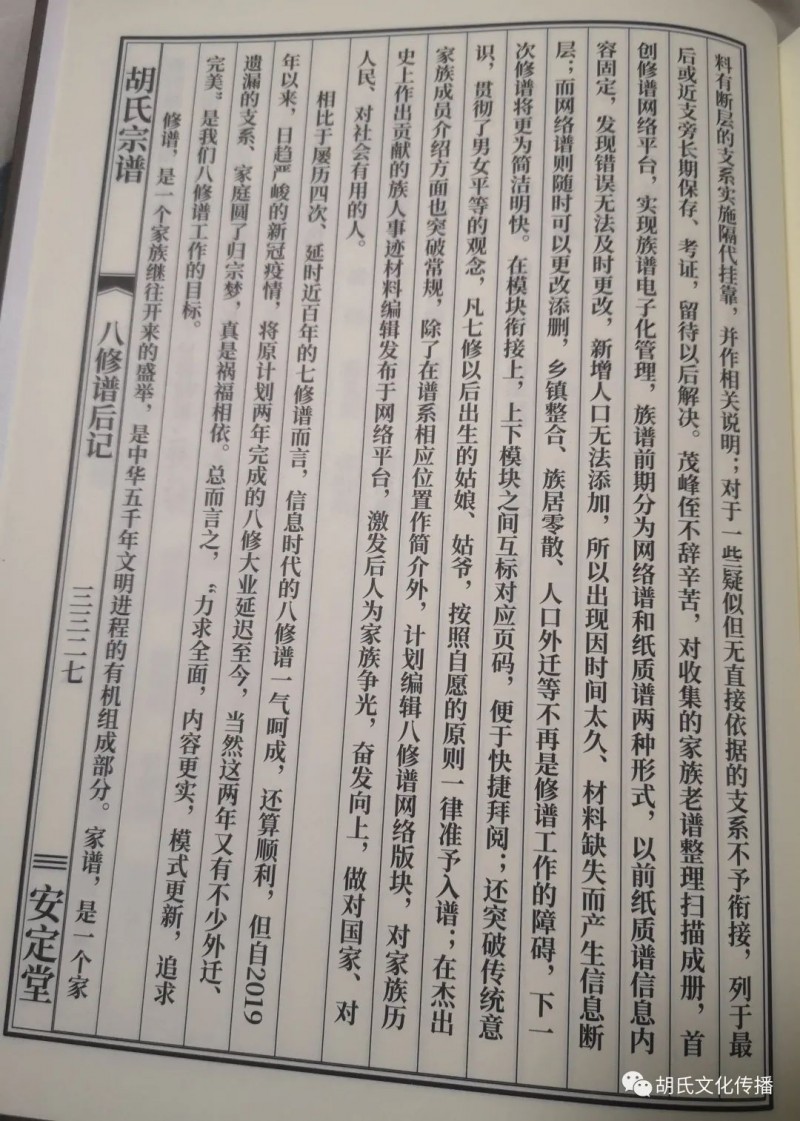 料有断层的支系实施隔代挂靠，并作相关说明；对于一些疑似但无直接依据的支系不予衔接，列于最
后或近支旁长期保存、考证，留待以后解决。茂峰侄不辞辛苦，对收集的家族老谱整理扫描成册，首
创修谱网络平台，实现族谱电子化管理，族谱前期分为网络谱和纸质谱两种形式，以前纸质谱信息内
容固定，发现错误无法及时更改，新增人口无法添加，所以出现因时间太久、材料缺失而产生信息断
层；而网络谱则随时可以更改添删，乡镇整合、族居零散、人口外迁等不再是修谱工作的障碍，下一
次修谱将更为简洁明快。在模块衔接上，上下模块之间互标对应页码，便于快捷拜阅；还突破传统意
识，贯彻了男女平等的观念，凡七修以后出生的姑娘、姑爷，按照自愿的原则一律准予入谱；在杰出
家族成员介绍方面也突破常规，除了在谱系相应位置作简介外，计划编辑八修谱网络版块，对家族历
史上作出贡献的族人事迹材料编辑发布于网络平台，激发后人为家族争光，奋发向上，做对国家、对
人民、对社会有用的人。
相比于屡历四次、延时近百年的七修谱而言，信息时代的八修谱一气呵成，还算顺利，但自2019
年以来，日趋严峻的新冠疫情，将原计划两年完成的八修大业延迟至今，当然这两年又有不少外迁、
遗漏的支系、家庭圆了归宗梦，真是祸福相依。总而言之，“力求全面，内容更实，模式更新，追求
完美”是我们八修谱工作的目标。
修谱，是一个家族继往开来的盛举，是中华五千年文明进程的有机组成部分。家谱，是一个家
胡氏宗谱
八修谱后记
三三二七
安定堂
胡氏文化传播